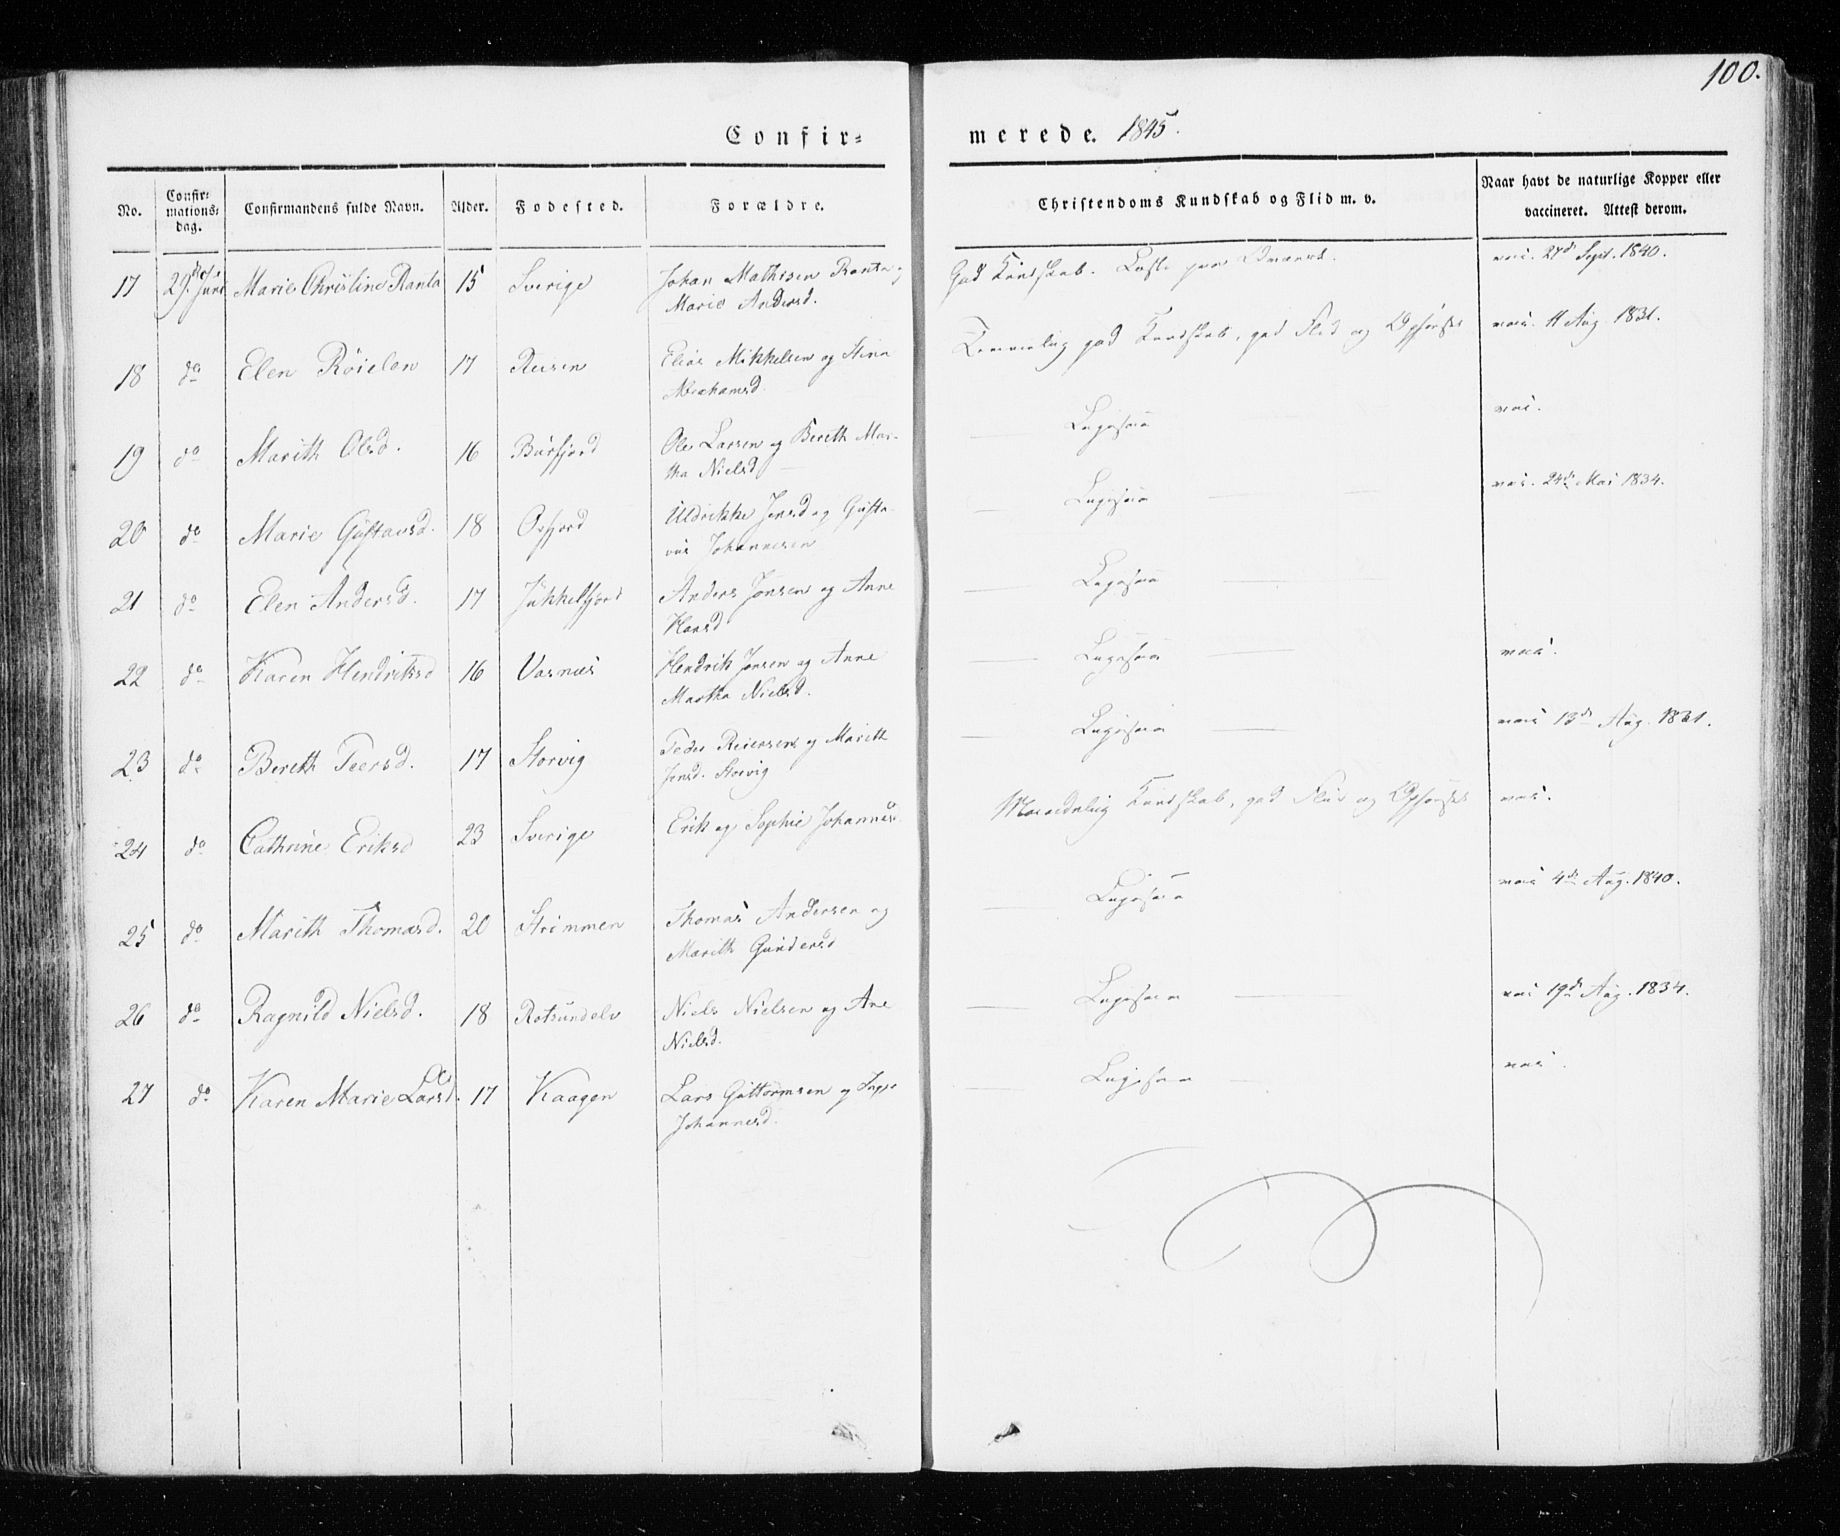 100.
Confir= merede. 1845.
No. Confir=mations=dag. Confirmandens fulde Navn. Alder. Fødested. Forældre. Christendoms Kundskab og Flid m. v. Naar havt de naturlige Kopper eller vaccineret. Attest derom.
17 29de Juni Marie Christine Ranta 15 Sverige Johan Mathisen Ranta og God Kundskab. vac. 27de Sept. 1840.
Marie Andersd.
18 do Elen Röielen 17 Reisen Elias Mikkelsen og Stina Temmelig god Kundskab, god Flid og Opförsel vac. 11 Aug. 1831.
Abrahamsd.
19 do Marith Olsd. 16 Burfjord Ole Larsen og Bereth Mar- Ligesaa vac.
tha Nielsd
20 do Marie Gustavsd. 18 Oxfjord Uldrikke Jensd og Gusta- Ligesaa vac. 24de Mai 1834.
vus Johannesen
21 do Elen Andersd. 17 Jukkelfjord Anders Jonsen og Anne Ligesaa
Hansd
22 do Karen Hendriksd 16 Vasnæs Hendrik Jensen og Anne Ligesaa vac.
Martha Nielsd.
23 do Bereth Peersd. 17 Storvig Peder Reiersen og Marith Ligesaa vac 13de Aug. 1831.
Jensd. Storvig
24 do Cathrine Eriksd 23 Sverige Erik og Sophie Johannesd. Maadelig Kundskab, god Flid og Opförsel vac.
25 do Marith Thomasd. 20 Strömmen Thomas Andersen og Ligesaa vac 4de Aug. 1840.
Marith Gundersd
26 do Ragnild Nielsd. 18 Rotsundelv Niels Nielsen og Ane Ligesaa vac 19de Aug. 1834.
Nielsd.
27 do Karen Marie Larsd. 17 Kaagen Lars Guttormsen og Inger Ligesaa vac.
Johannesd.